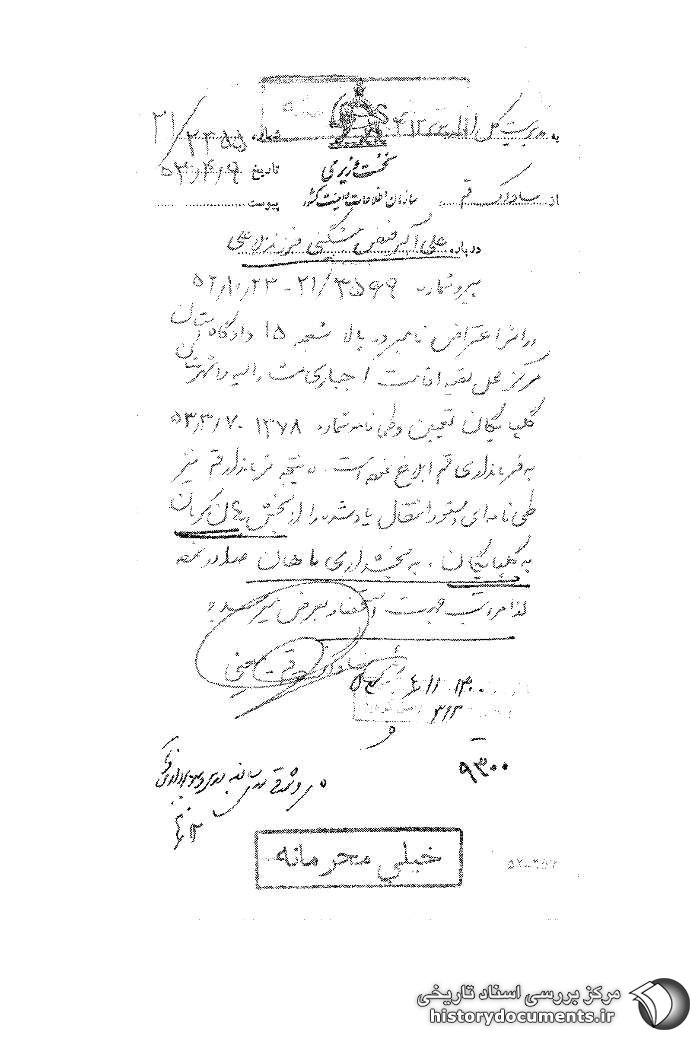 به مدیریت کل اداره سوم ۳۱۲
شماره ۲۳۵۵ /۲۱
نخست وزیری
تاریخ ۵۳/۴/۹
از ساواک قم
سازمان اطلاعات و امنیت کشور
پیوست
درباره علی اکبر فیض مشکینی فرزند علی
پیرو شماره ۳۵۶۹/۲۱ - ۵۲/۱۰/۲۳
در اثر اعتراض نامبرده بالا شعبه ۱۵ دادگاه استان
مرکز محل بقیه اقامت اجباری مشارالیه را شهرستان
گلپایگان تعیین و طی نامه شماره ۱۲۷۸ - ۵۳/۳/۷
به فرمانداری قم ابلاغ نموده است. در نتیجه فرماندار قم نیز
طی نامه‌ای دستور انتقال یاد شده را از بخش ماهان کرمان
به گلپایگان، به بخشداری ماهان صادر نموده
لذا مراتب جهت استحضار بعرض میرسد
رئیس ساواک قم
۳۱۲
۹۳۰۰
خیلی محرمانه
مرکز بررسی اسناد تاریخی
historydocuments.ir